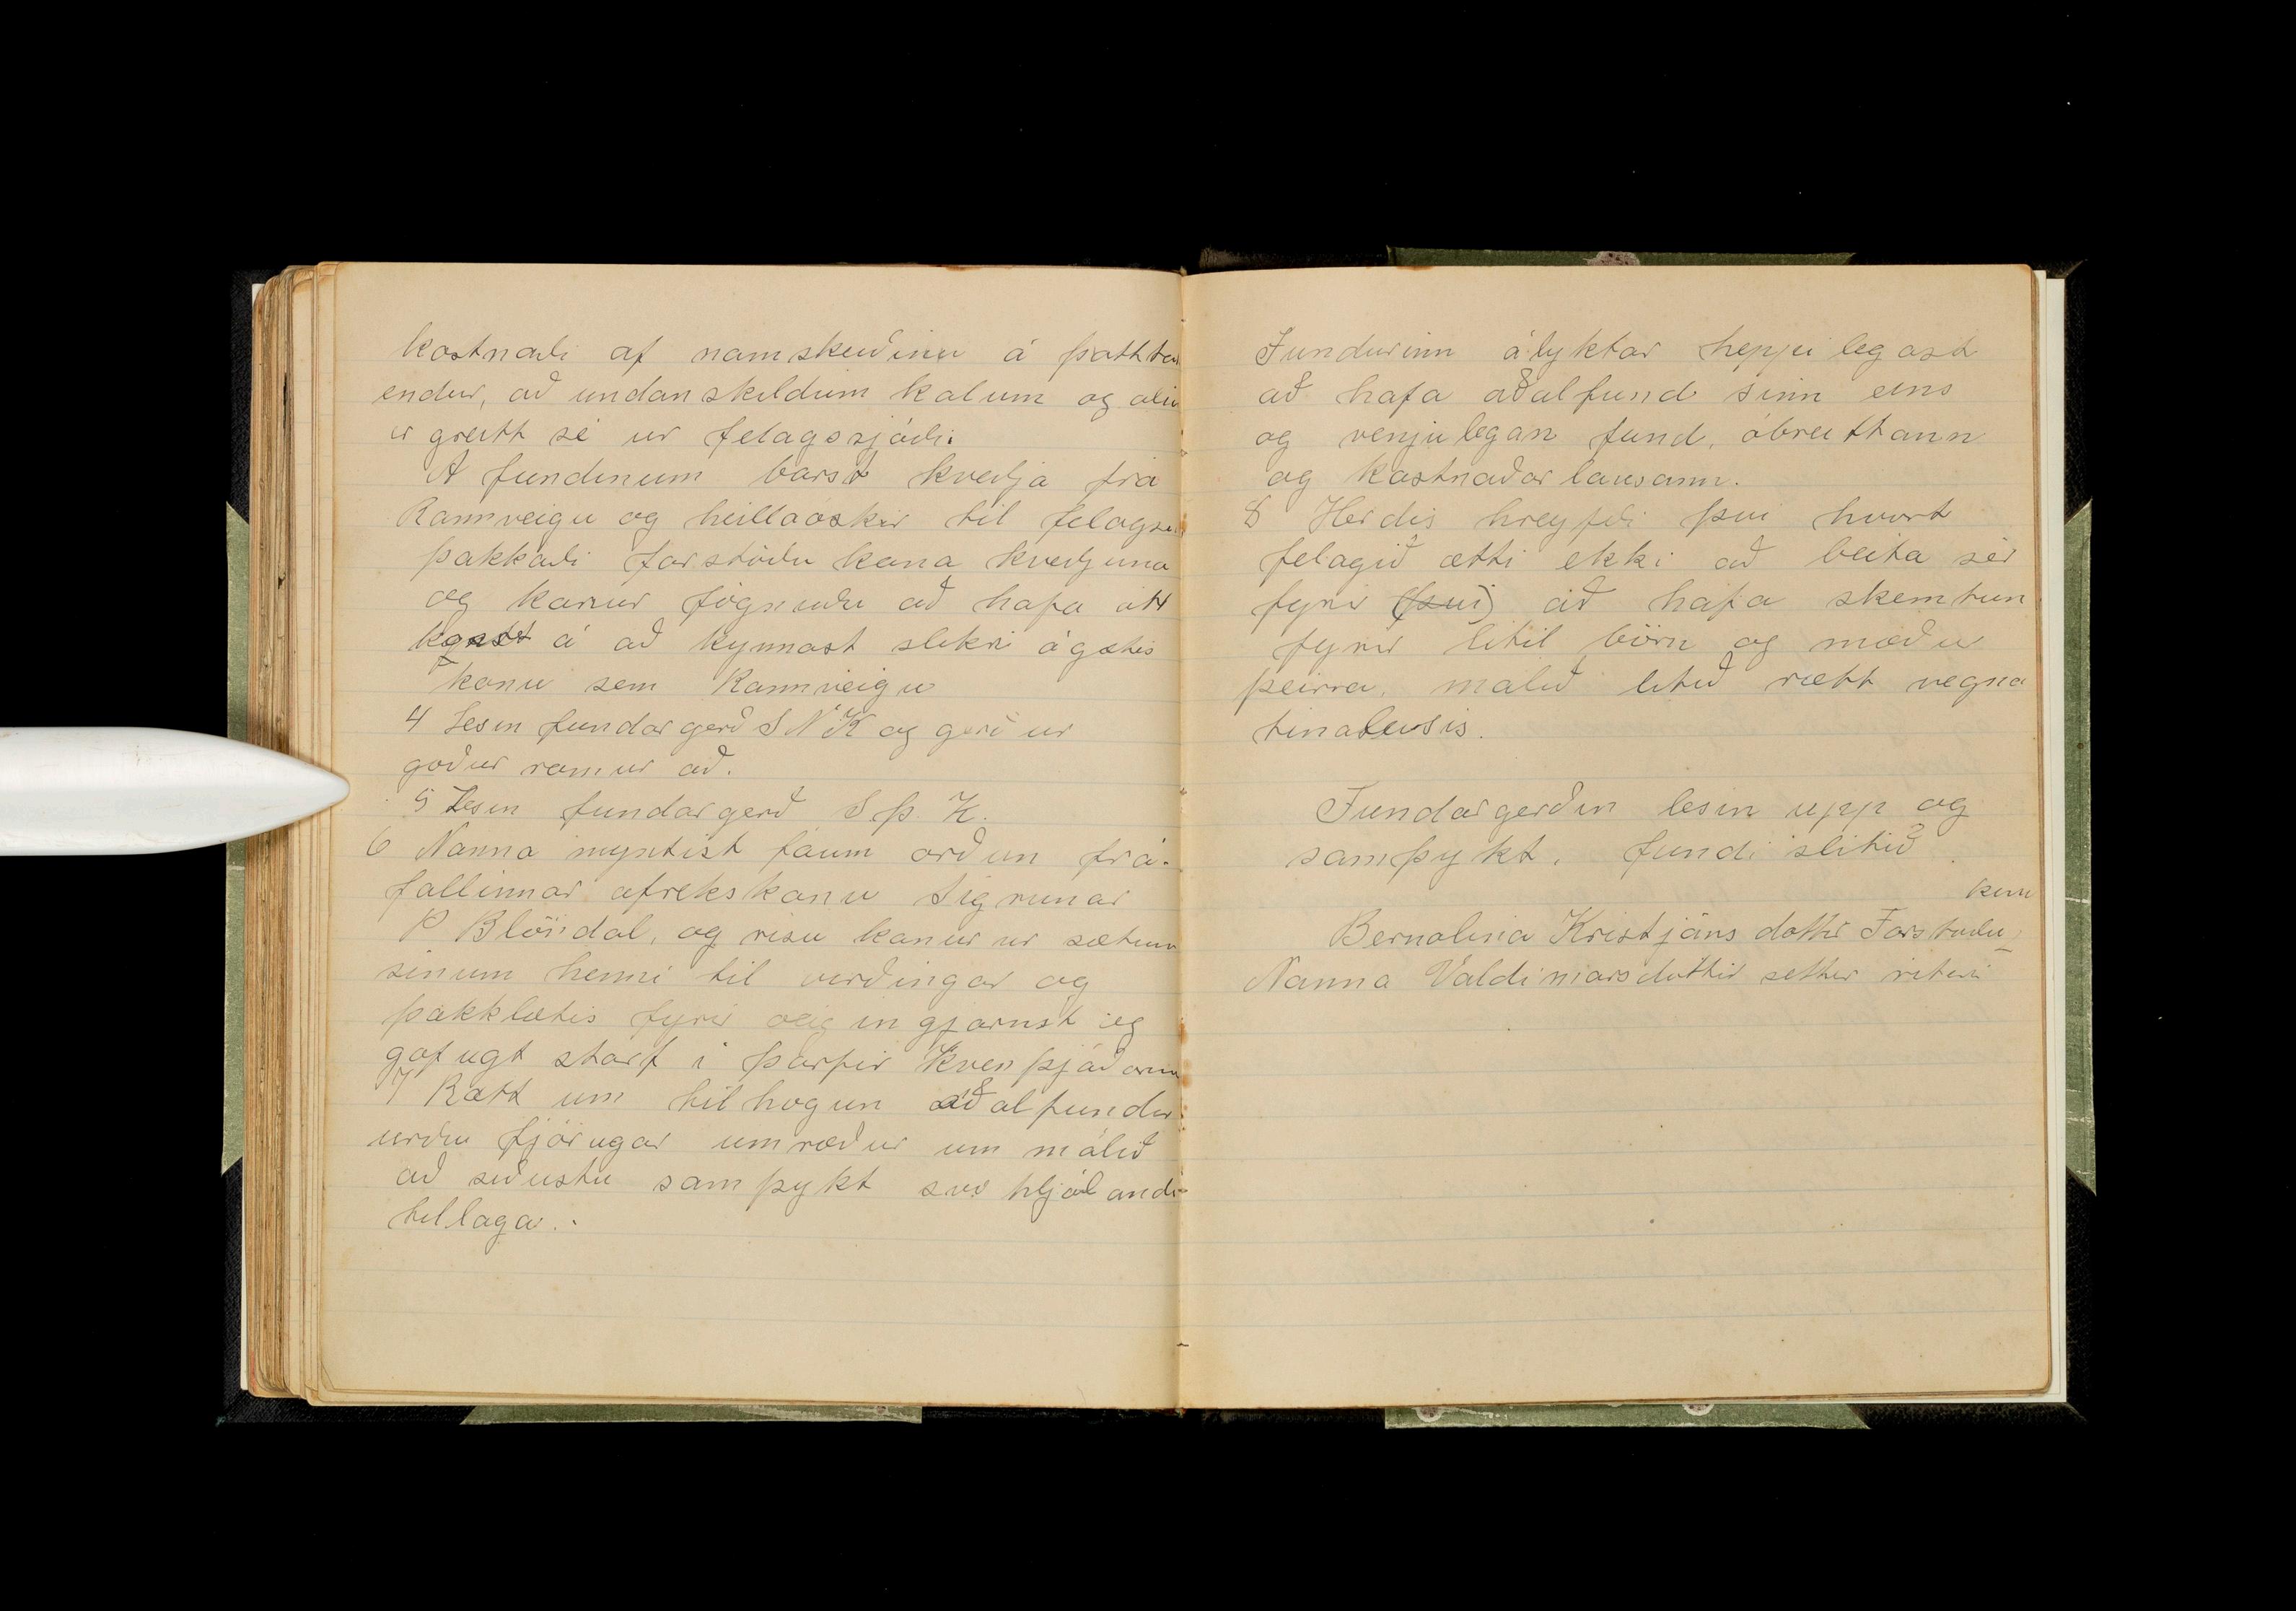 kostnaði af namskeiðinu á þáttak
endur, að undanskildum kolum og oliu
er greitt sé ur felagssjóði.
A fundinum barst kveðja frá
Rannveigu og heillaóskir til felagsin
þakkaði forstöðu kona kveðjuna
og konur fögnuðu að hafa átt
kost á að kynnast slíkri ágætis
konu sem Rannveigu
4 Lesin fundargerð S N K og gerð ur
goður romur að.
5 Lesin fundargerð S Þ. K.
6 Nanna myntist fáum orðun frá-
fallinnar afrekskonu Sigrunar
P Blöndal, og risu konur ur sætum
sinum henni til virðingar og
þakklætis fyrir óeigingjarnst og
gofugt starf i þarfir kvenþjóðarin
7 Rætt um tilhogun aðalfundar
urðu fjörugar umræður um málið
að siðustu samþykt svo hljóðandi
tillaga.
Fundurinn ályktar heppilegast
að hafa aðalfund sinn eins
og venjulegan fund, óbreittann
og kostnaðarlausann.
8 Herdis hreyfði þvi hvort
felagið ætti ekki að beita sér
fyrir (því) að hafa skemtun
fyrir litil börn og mæður
þeirra, malið litið rætt vegna
timaleysis.
Fundargerðin lesin upp og
samþykt. fundi slitið.
kona
Bernolina Kristjáns dottir Forstöðu
Nanna Valdimarsdóttir settur ritari